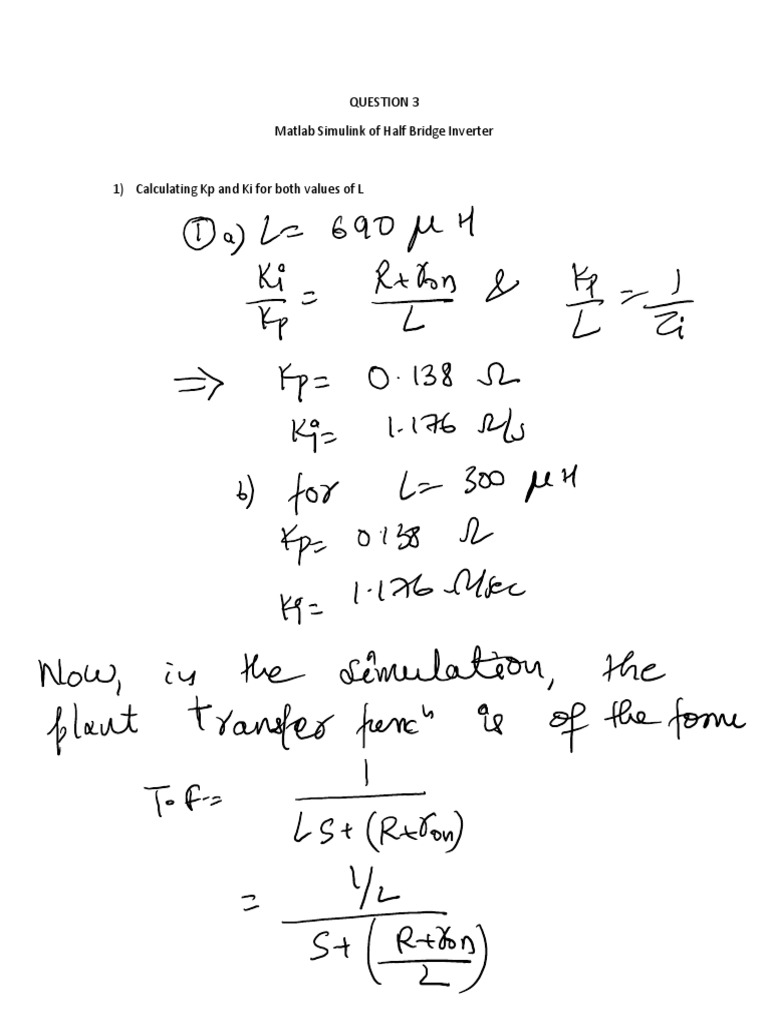 QUESTION 3
Matlab Simulink of Half Bridge Inverter
1) Calculating Kp and Ki for both values of L
① a) L = 690 μH
Ki/Kp = (R+ron)/L & Kp/L = 1/τi
⇒ Kp = 0.138 Ω
Ki = 1.176 Ω/s
b) for L = 300 μH
Kp = 0.138 Ω
Ki = 1.176 Ω/sec
Now, in the simulation, the
plant transfer funcⁿ is of the form
T.F = 1/(LS + (R+ron))
= (1/L)/(S + ((R+ron)/L))